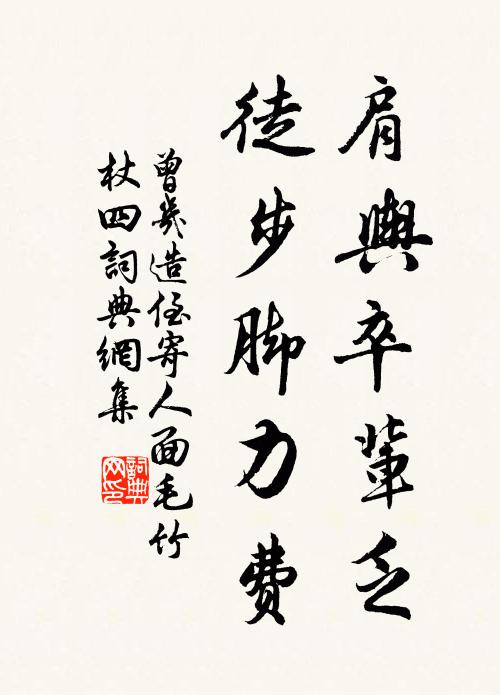 肩輿卒輩乏
徒步脚力費
曾幾造侄寄人面毛竹
杖四詞典網集
詞典
网印